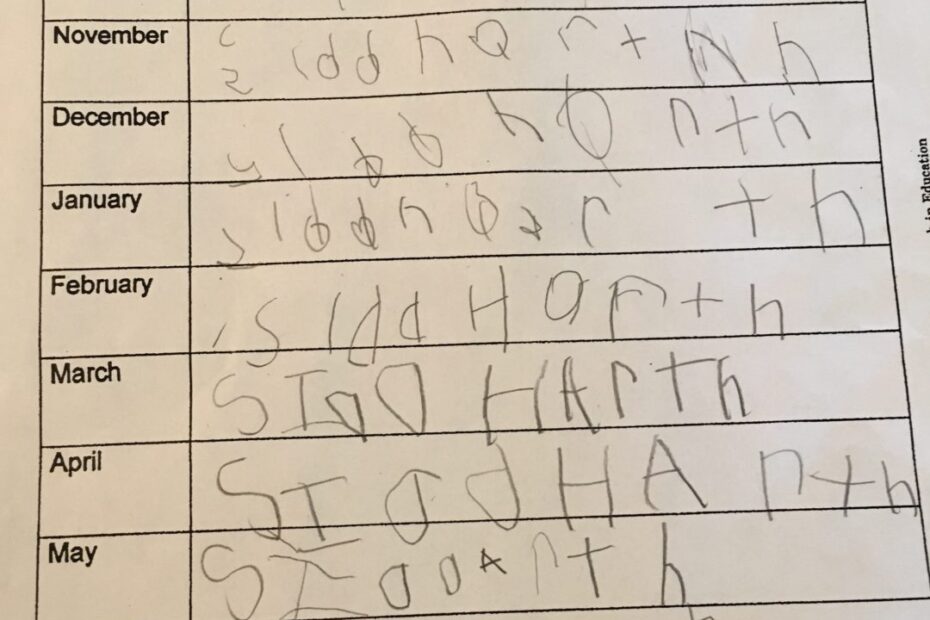 November siddhartнh
December siddharth
January siddhaarth
February siddHarth
March SIddHArth
April SIddHArth
May SIddArth
h in Education